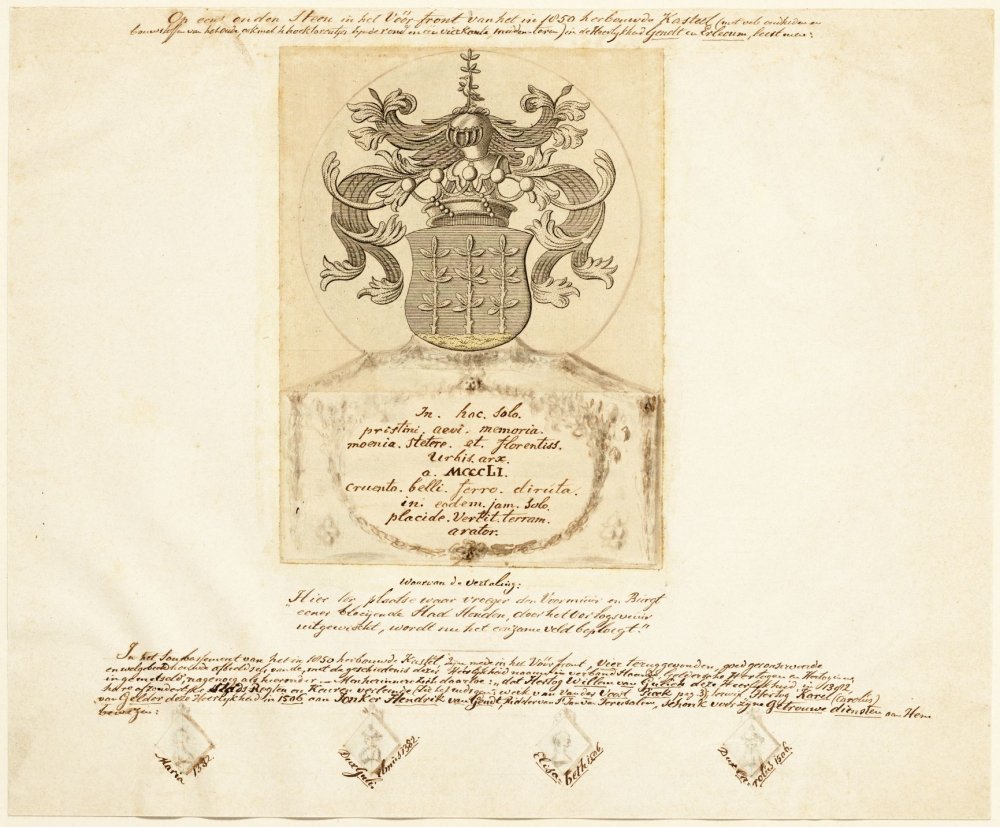 Op een ouden Steen in het Vóór front van het in 1850 herbouwde Kasteel (met vele oudheden en
bouwstoffen van het oude, ook met 4 hoektorentjes bezuiden rond in een vierkante muiden-toren) in de Heerlijkheid Gendt en Erlecum, leest men:
In. hac. solo.
pristini. aevi. memoria.
moenia. stetere. et. florentiss.
Urbis. arx.
a. MCCCLI.
cruento. belli. ferro. diruta.
in. eodem. jam. solo.
placide. Vertit. terram.
arator.
Waarvan de vertaling:
"Hier ter plaatse waar vroeger den Voormuur en Burgt
eener bloeijende Stad stonden, door het oorlogsvuur
uitgewischt, wordt nu het eenzame veld beploegt."
In het Soubassement van het in 1850 herbouwde Kasteel, zijn mede in het Vóór front, vier teruggevonden, goed geconserveerde
en welgebeeldhouwde afbeeldsels, van de, met de geschiedenis dezer Heerlijkheid naauw in verband staande Geldersche Hertogen en Hertoginnen
ingemetseld, nagenoeg als hieronder. Men herinnere zich daarbij: "dat Hertog Willem van Gulich deze Heerlijkheid in 1382
hare afzonderlijke stads Regten en Keuren verleende (Zie bij werk van Van der Voort pag 3) terwijl Hertog Karel (Carolus)
van Gelder deze Heerlijkheid, in 1506 aan Jonker Hendrik van Gendt, Ridder van St Jan van Jerusalem, schonk voor zijne getrouwe diensten aan Hem
bewezen:
Maria 1382.
Dux Gulielmus 1382.
Elisabeth 1506.
Dux Carolus 1506.